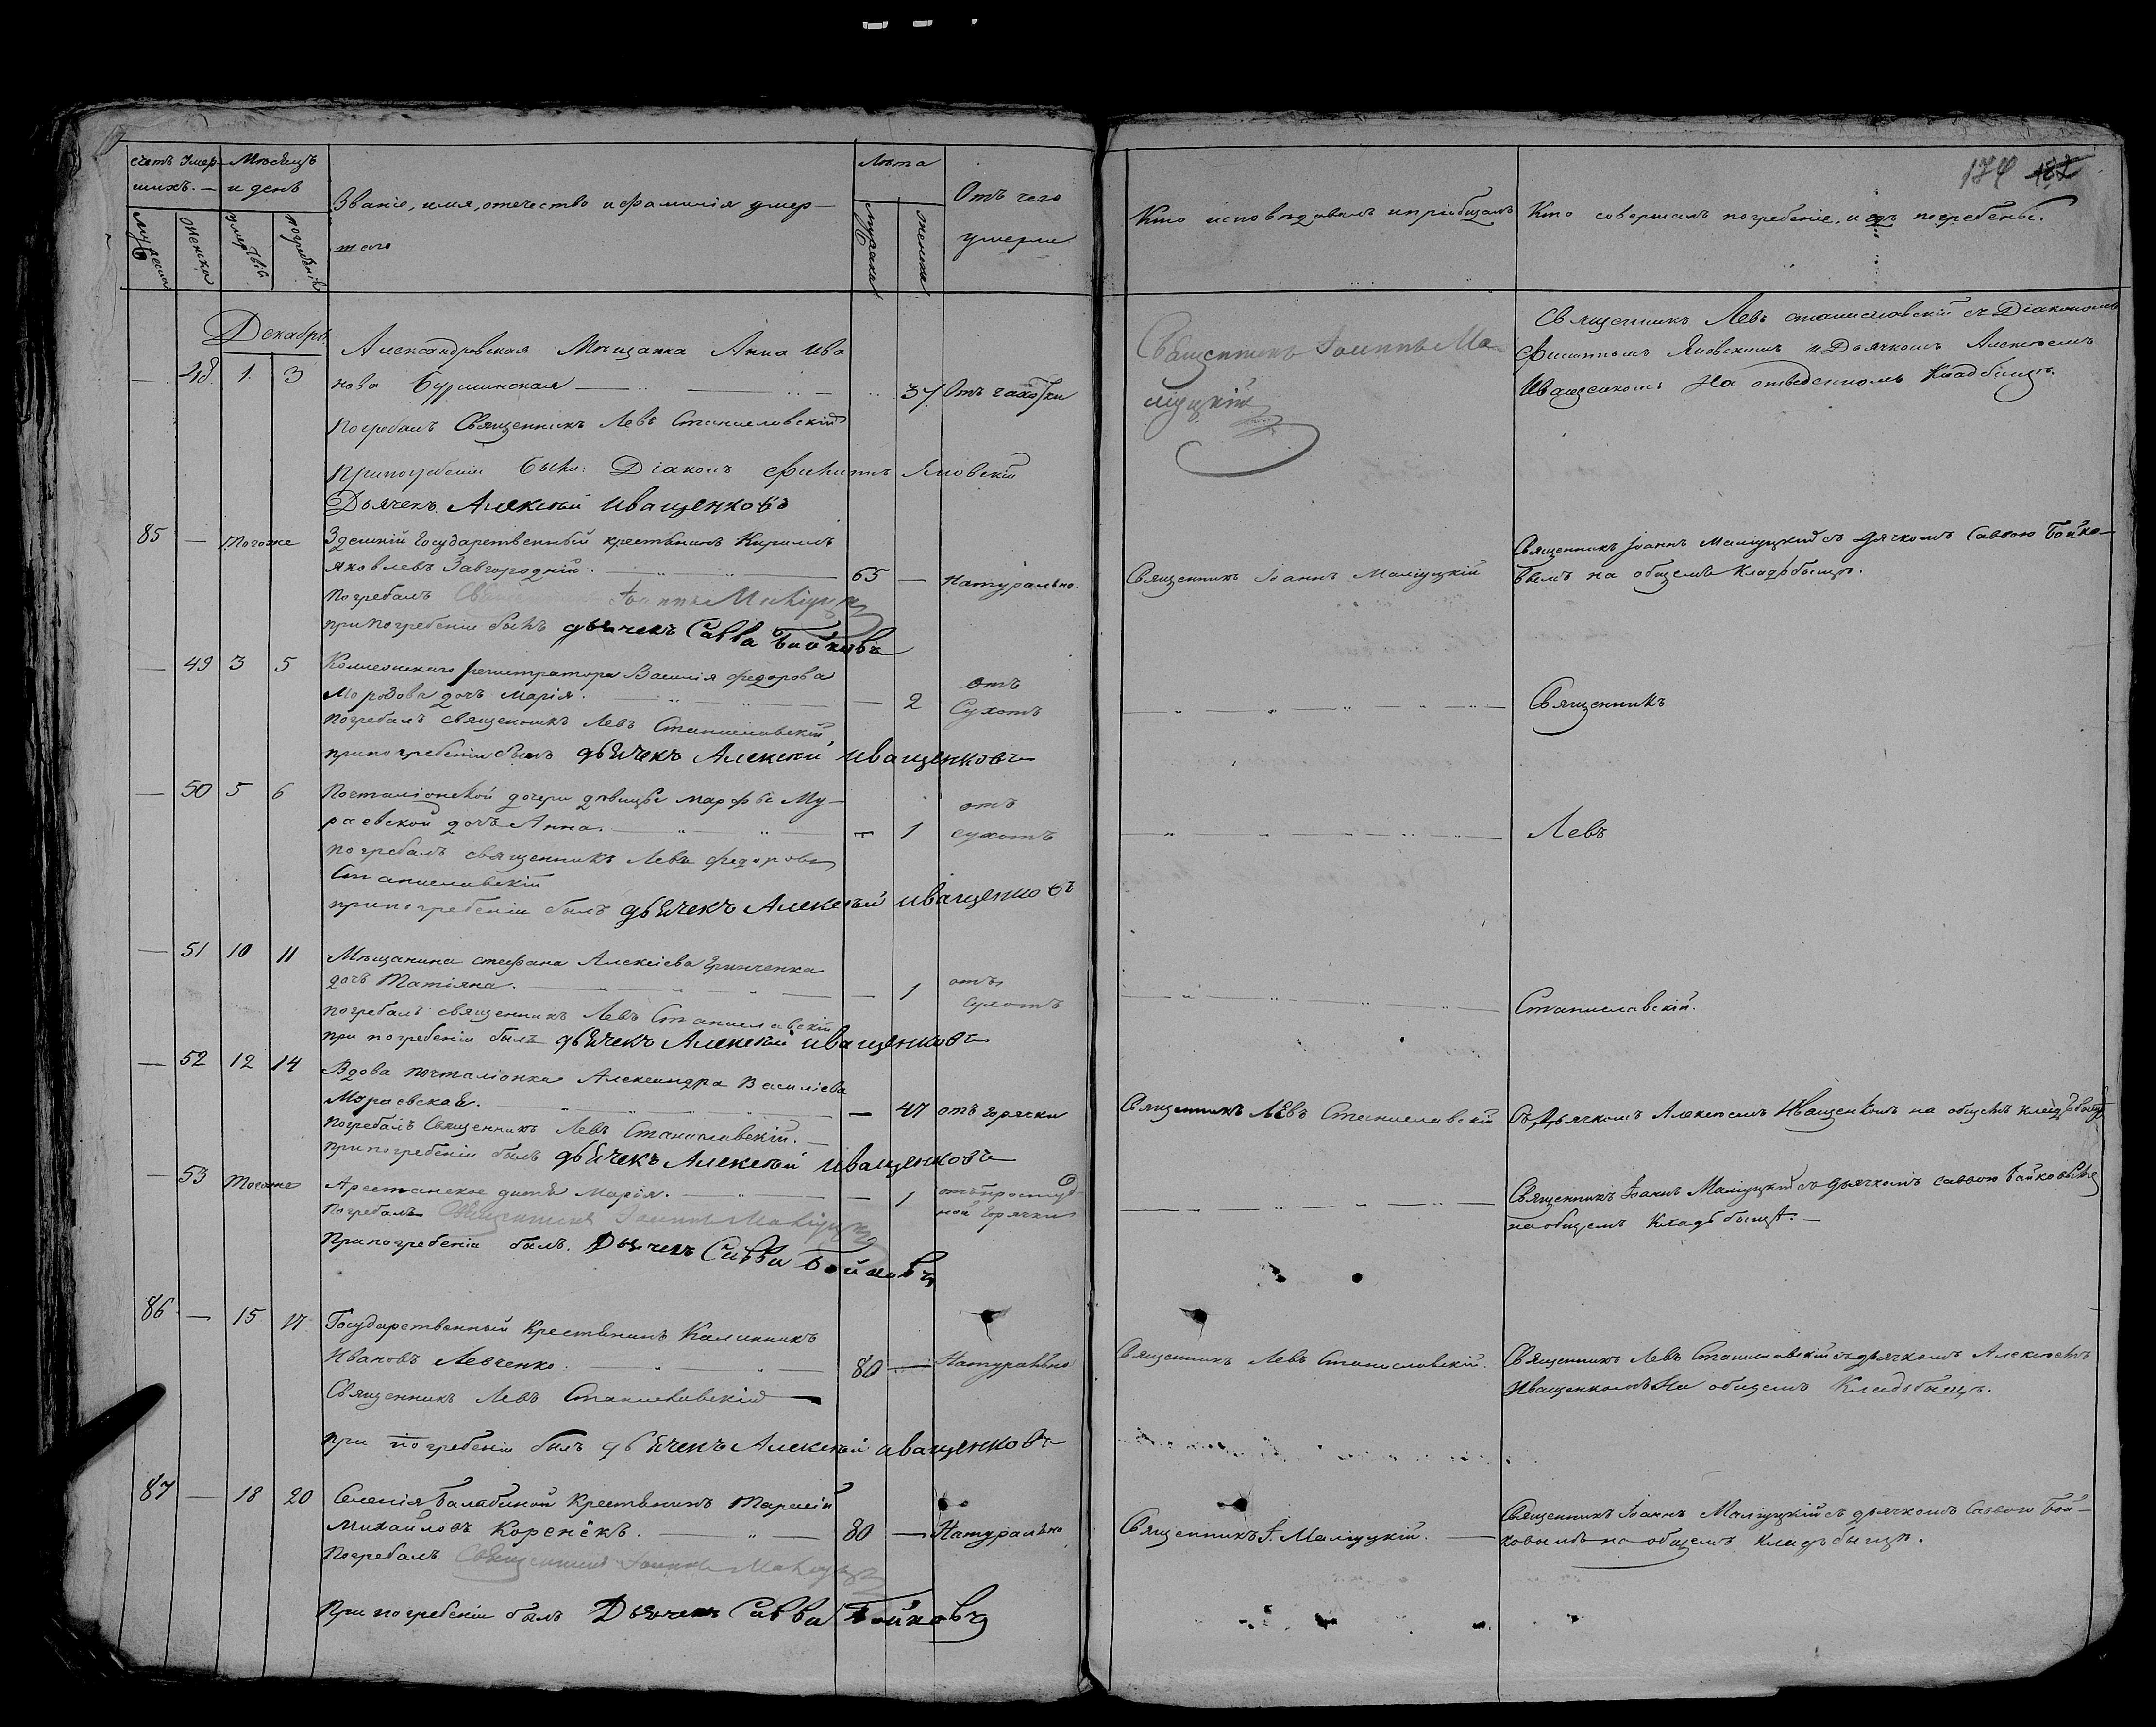 174 182
счетъ умер-
шихъ.
Мѣсяцъ
и день
Званіе, имя, отчество и фамилія умер-
шаго
Лѣта
Отъ чего
умерли
Кто исповѣдовалъ и пріобщалъ
Кто совершалъ погребеніе, и гдѣ погребены.
мужеска
женска
смерти
погребенія
мужеска
женска
Декабрь
— 48. 1. 3
Александровская Мѣщанка Анна Ива
нова Бурминская 37 Отъ чахотки
Погребалъ Священникъ Левъ Станиславскій
При погребеніи были: Діаконъ Яновскій
Дьячекъ Алексѣй Иващенковъ
Священникъ Іоаннъ Ма-
ліуцкій
Священникъ Левъ Станиславскій съ Діакономъ
Яновскимъ и Дьячкомъ Алексѣемъ
Иващенкомъ На отведенномъ Кладбищѣ.
85 — Тогоже
Здешній Государственный крестьянинъ Кириллъ
Яковлевъ Завгородній. 65 — Натурально.
Погребалъ Священникъ Іоаннъ Маліуцкій
при погребеніи былъ дьячекъ Савва Бойковъ
Священникъ Іоаннъ Маліуцкій
Священникъ Іоаннъ Маліуцкій съ дячкомъ Саввою Бойко-
вымъ на общемъ кладьбыщѣ.
— 49 3 5
Коллежскаго регистратора Василія Федорова
Морозова дочь Марія. — 2 Отъ
Сухотъ
погребалъ священникъ Левъ Станиславскій
при погребеніи былъ дьячекъ Алексѣй Иващенковъ
Священникъ
— 50 5 6
Почталіонской дочери дѣвицы Марфы Му-
раевской дочь Анна. 1 отъ
сухотъ
погребалъ священникъ Левъ Федоровъ
Станиславскій
при погребеніи былъ дьячекъ Алексѣй Иващенковъ
Левъ
— 51 10 11
Мѣщанина Стефана Алексіева Гринченка
дочь Татіяна. — 1 отъ
Сухотъ
погребалъ священникъ Левъ Станиславскій
при погребеніи былъ дьячекъ Алексѣй Иващенковъ
Станиславскій.
— 52 12 14
Вдова почталіонка Александра Василіева
Мораевская. — 47 отъ горячки
Погребалъ Священникъ Левъ Станиславскій. —
при погребеніи былъ дьячекъ Алексѣй Иващенковъ
Священникъ Левъ Станиславскій
Съ Дьячкомъ Алексѣемъ Иващенкомъ на общемъ кладьбыщѣ
— 53 Тогоже
Арестанское дитѣ Марія. — 1 отъ простуд-
ной горячки
Погребалъ Священникъ Іоаннъ Маліуцкій
При погребеніи былъ. Дьячекъ Савва Бойковъ
Священникъ Іоаннъ Маліуцкій съ дьячкомъ Саввою Байковымъ
на общемъ Кладьбыщѣ. —
86 — 15 17
Государственный Крестьянинъ Калинникъ
Ивановъ Левченко. 80 — Натурально
Священникъ Левъ Станиславскій
при погребеніи былъ дьячекъ Алексѣй Иващенковъ
Священникъ Левъ Станиславскій.
Священникъ Левъ Станиславскій съ дьячкомъ Алексѣемъ
Иващенкомъ На общемъ Кладьбыщѣ.
87 — 18 20
Селенія Балабиной Крестьянинъ Тарасій
Михайловъ Коренёкъ. 80 — Натурально
Погребалъ Священникъ Іоаннъ Маліуцкій
При погребеніи былъ Дьячекъ Савва Бойковъ
Священникъ І. Маліуцкій.
Священникъ Іоаннъ Маліуцкій съ дьячкомъ Саввою Бой-
ковымъ на общемъ Кладьбыщѣ.